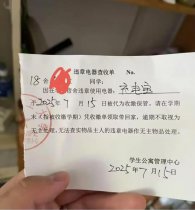 违章电器查收单
No.
18舍 同学:
因在宿舍违章使用电器,
于2025年7月15日被代为收缴保管。请在学期
末(每被收缴学期)凭收缴单领取带回家，逾期不取视为
无主处理,无法查实物品主人的违章电器作无主物品处理。
学生公寓管理中心
2025年7月15日